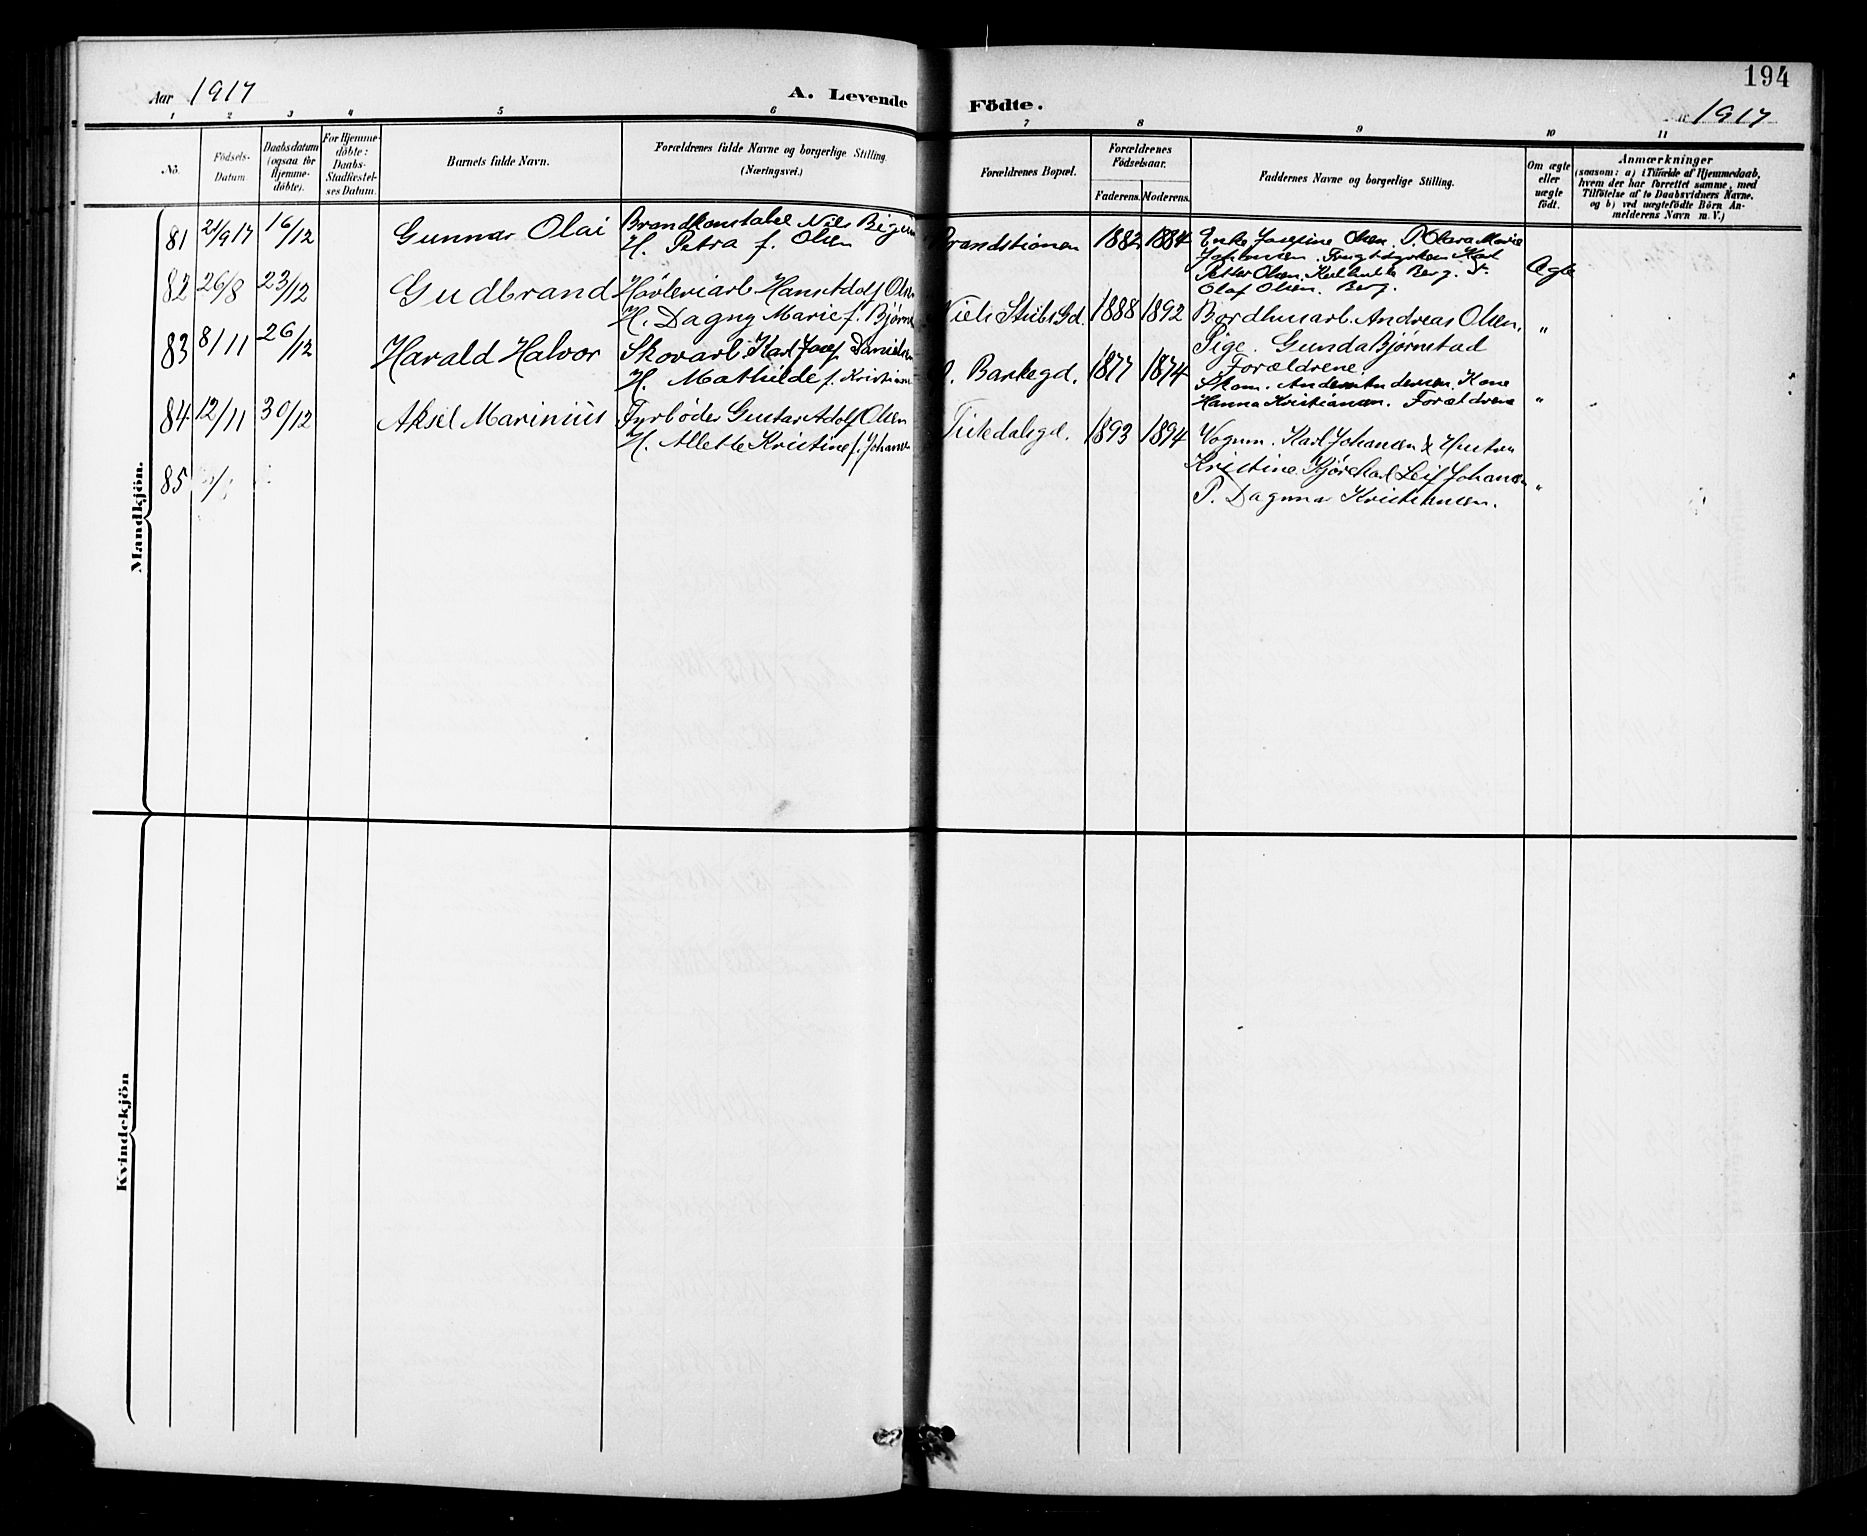 194
Aar 1917
A. Levende Födte.
1917
1 2 3 4 5 6 7 8 9 10 11
No.
Födsels-
Datum.
Daabsdatum
(ogsaa for
Hjemme-
döbte).
For Hjemme-
döbte:
Daabs-
Stadfæstel-
ses Datum.
Barnets fulde Navn.
Forældrenes fulde Navne og borgerlige Stilling.
(Næringsvei.)
Forældrenes Bopæl.
Forældrenes
Födselsaar.
Faderens. Moderens.
Faddernes Navne og borgerlige Stilling.
Om ægte
eller
uægte
födt.
Anmærkninger
(saasom: a) i Tilfælde af Hjemmedaab,
hvem der har forrettet samme, med
Tilföielse af to Daabsvidners Navne.
og b) ved uægtefödte Börn An-
melderens Navn m. V.)
Mandkjön.
81 21/9 17 16/12 Gunnar Olai
Brandkonstabel Nils
H. Petra f. Olsen
Brandstionen 1882 1884
Enke Josefine Olsen. P. Olava Marie
Johansen.
Petter Olsen. Berg.
Olaf Olsen. Berg.
Ægte
82 26/8 23/12 Gudbrand
Høvleriarb. Hans Adolf Olsen
H. Dagny Marie f. Bjørn
Niels Stubs Gd. 1888 1892
Bordhusarb. Andreas Olsen,
Pige. Gunda Bjørnstad
Forældrene.
"
83 8/11 26/12 Harald Halvor
Skovarb. Karl Josef Danielsen
H. Mathilde f. Kristians
Bankegd. 1877 1874
Skom. Anders Andersen. Kone
Hanna Kristiansen. Forældrene
"
84 12/11 30/12 Aksel Marinius
Fyrbøder Gustav Adolf Olsen
H. Allette Kristine f. Johansen
Tistedalsgd. 1893 1894
Vognm. Karl Johansen & Hustru
Kristine. Leif Johansen
P. Dagmar Kristiansen.
"
85
Kvindekjön